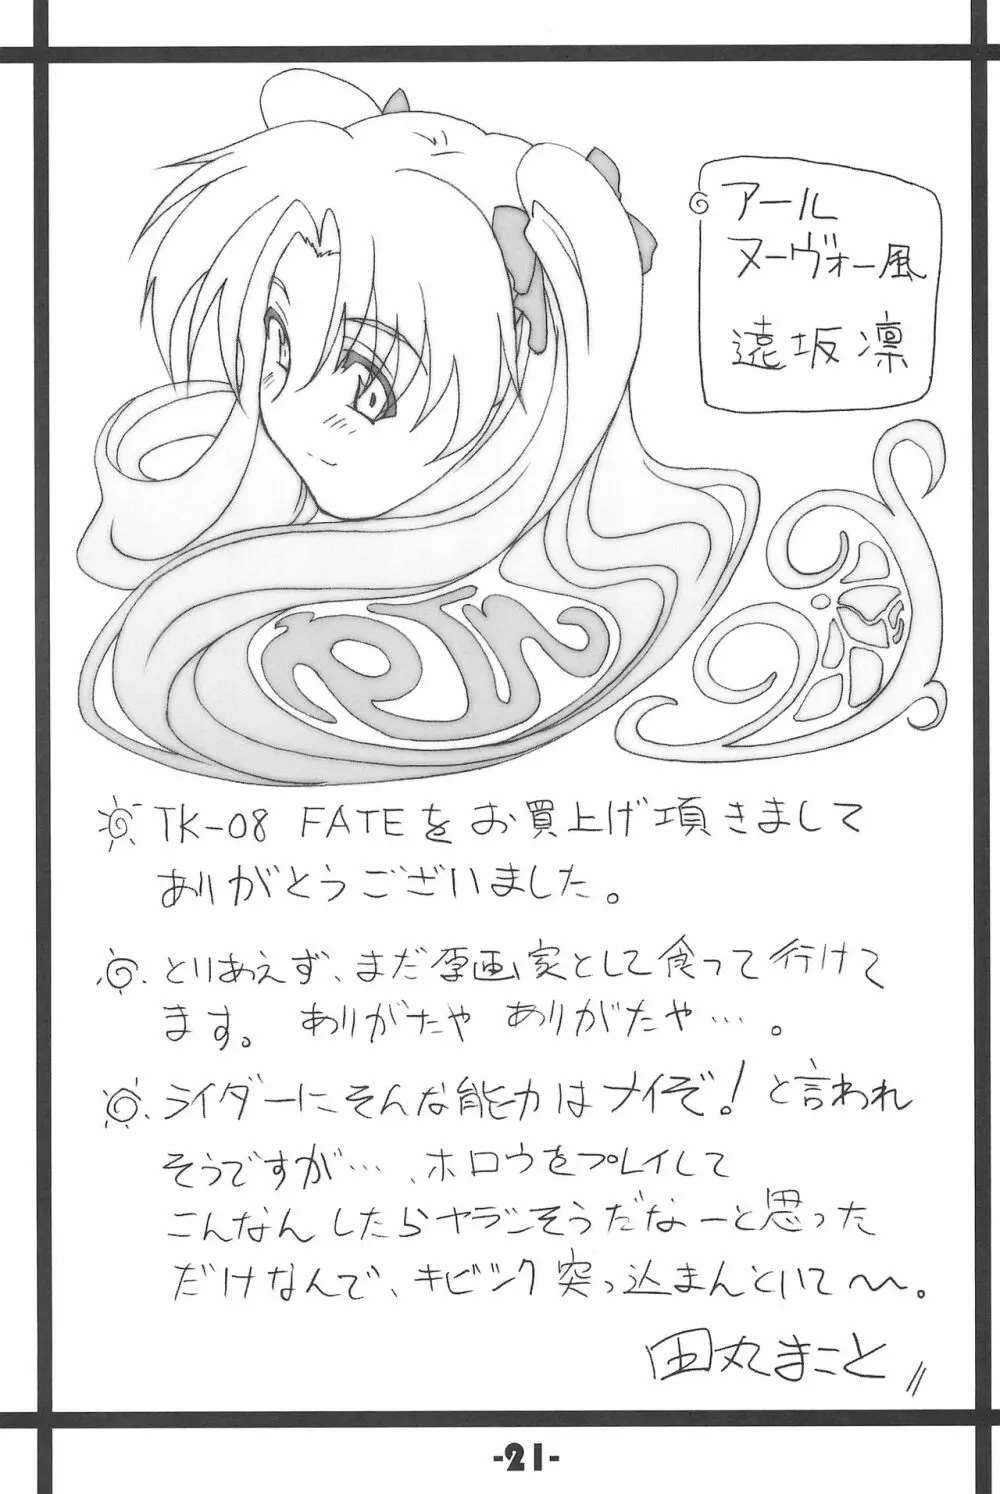 アール
ヌーヴォー風
遠坂凛
RIN
TK-08 FATEをお買上げ頂きまして
ありがとうございました。
とりあえず、まだ原画家として食って行けて
ます。ありがたや ありがたや…。
ライダーにそんな能力はナイぞ!と言われ
そうですが…、ホロウをプレイして
こんなんしたらヤラシそうだなーと思った
だけなんで、キビシク突っ込まんといて〜。
田丸まこと
-21-